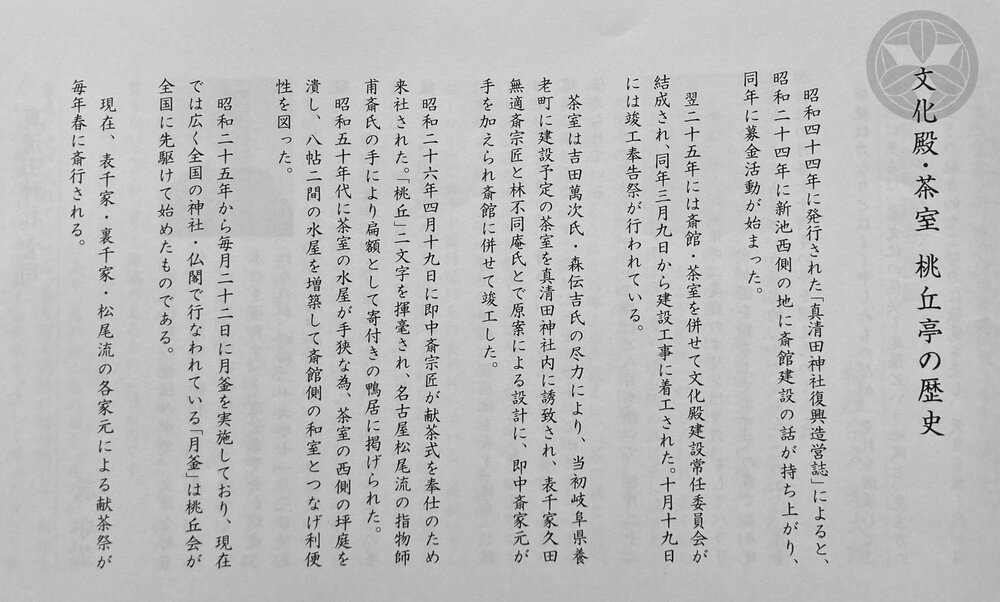 文化殿・茶室　桃丘亭の歴史
昭和四十四年に発行された「真清田神社復興造営誌」によると、
昭和二十四年に新池西側の地に斎館建設の話が持ち上がり、
同年に募金活動が始まった。
翌二十五年には斎館・茶室を併せて文化殿建設常任委員会が
結成され、同年三月九日から建設工事に着工された。十月十九日
には竣工奉告祭が行われている。
茶室は吉田萬次氏・森伝吉氏の尽力により、当初岐阜県養
老町に建設予定の茶室を真清田神社内に誘致され、表千家久田
無適斎宗匠と林不同庵氏とで原案による設計に、即中斎家元が
手を加えられ斎館に併せて竣工した。
昭和二十六年四月十九日に即中斎宗匠が献茶式を奉仕のため
来社された。「桃丘」二文字を揮毫され、名古屋松尾流の指物師
甫斎氏の手により扁額として寄付きの鴨居に掲げられた。
昭和五十年代に茶室の水屋が手狭な為、茶室の西側の坪庭を
潰し、八帖二間の水屋を増築して斎館側の和室とつなげ利便
性を図った。
昭和二十五年から毎月二十二日に月釜を実施しており、現在
では広く全国の神社・仏閣で行なわれている「月釜」は桃丘会が
全国に先駆けて始めたものである。
現在、表千家・裏千家・松尾流の各家元による献茶祭が
毎年春に斎行される。